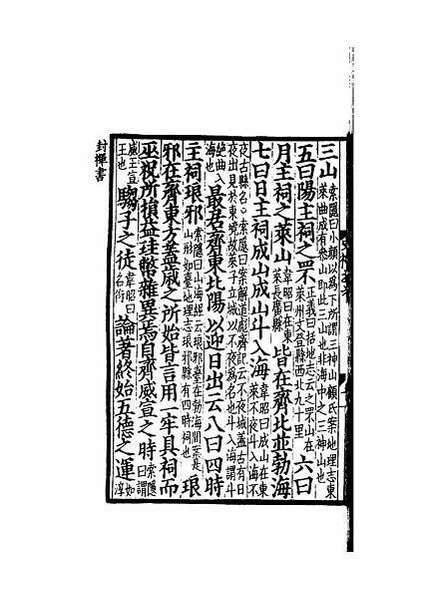 三山索隱曰小顔以爲下所謂三神山顧氏案地理志東萊曲成有參山即此三山也非海中之三神山也
五曰陽主祠之罘正義曰括地志云之罘山在萊州文登縣西北九十里六曰
月主祠之萊山韋昭曰在東萊長廣縣皆在齊北並勃海
七曰日主祠成山成山斗入海韋昭曰成山在東萊不夜斗入海不
夜古縣名索隱曰案解道彪齊記云不夜城蓋古有日夜出見於東境故萊子立城以不夜爲名也斗入海謂斗
絶曲入海也最居齊東北陽以迎日出云八曰四時
主祠琅邪索隱曰山海經云琅邪臺在勃海間山形如臺地理志琅邪縣有四時祠也琅
邪在齊東方蓋歲之所始皆言用一牢具祠而
巫祝所損益珪幣雜異焉自齊威宣之時索隱曰謂
威王宣王也騶子之徒名衍論著終始五德之運如淳
封禪書